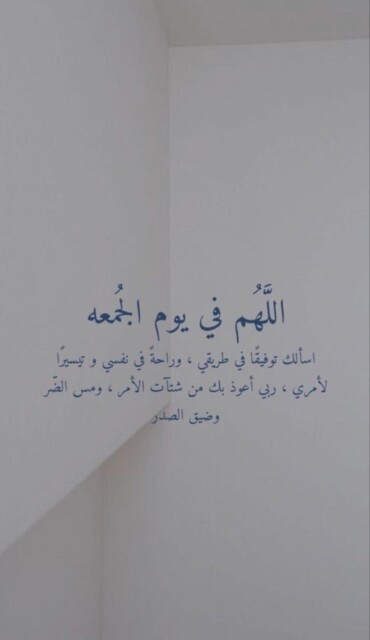 اللَّهُم في يوم الجُمعه
اسألك توفيقًا في طريقي ، وراحةً في نفسي و تيسيرًا
لأمري ، ربي أعوذ بك من شتآت الأمر ، ومس الضّر
وضيق الصدر